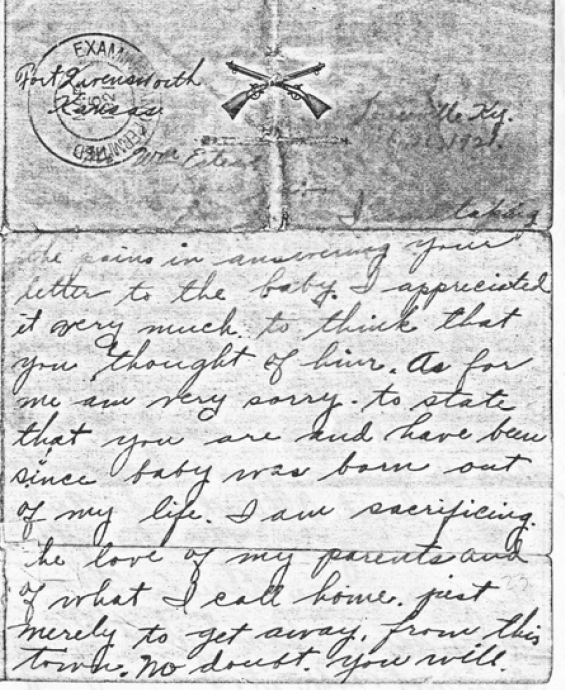 EXAMINED
Fort Leavensworth
Kansas.
Louisville Ky.
1921.
I am taking
the pains in answering your
letter to the baby. I appreciated
it very much. to think that
you thought of him. As for
me am very sorry. to state
that you are and have been
since baby was born out
of my life. I am sacrificing.
he love of my parents and
of what I call home. just
merely to get away. from this
town. No doubt. you will.